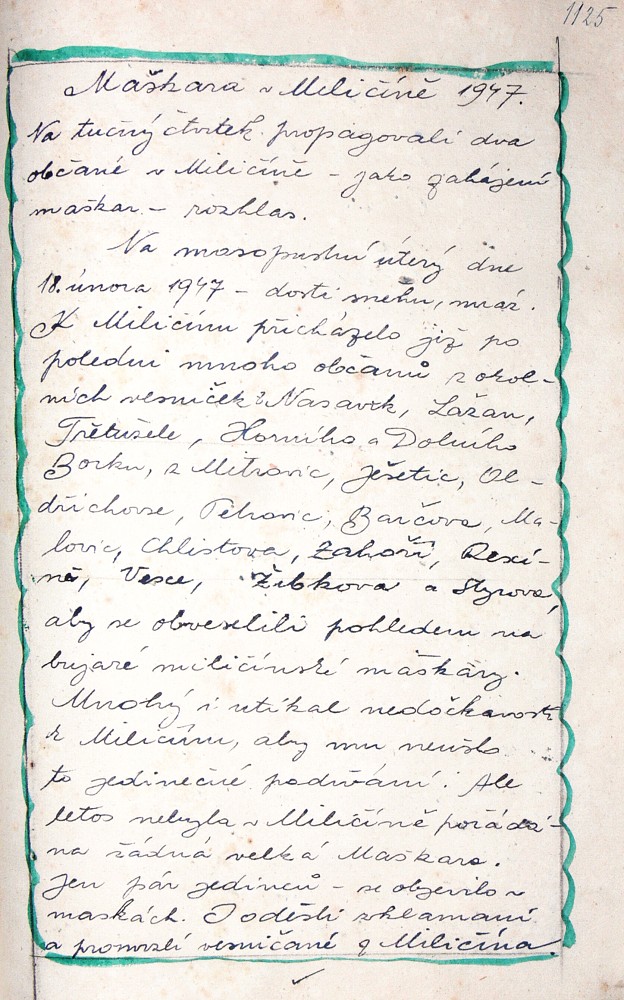 1125
Maškara v Miličíně 1947.
Na tučný čtvrtek propagovali dva
občané v Miličíně – jako zahájení
maškar – rozhlas.
Na masopustní úterý dne
18. února 1947 – dosti sněhu, mráz.
K Miličínu přicházelo již po
poledni mnoho občanů z okol-
ních vesniček: Nasavrk, Lažan,
Třetužele, Horního a Dolního
Borku, z Mitrovic, Ješetic, Ol-
dřichovse, Petrovic, Barčova, Ma-
lovic, Chlistova, Záhoří, Reksí-
ně, Vesce, Žibkova a Styrova,
aby se obveselili pohledem na
bujaré miličínské maškary.
Mnohý i utíkal nedočkavostí
k Miličínu, aby mu neušlo
to jedinečné podívání. Ale
letos nebyla v Miličíně pořádá-
na žádná velká Maškara.
Jen pár jedinců – se objevilo v
maskách. I odešli zklamaní
a promrzlí vesničané z Miličína.